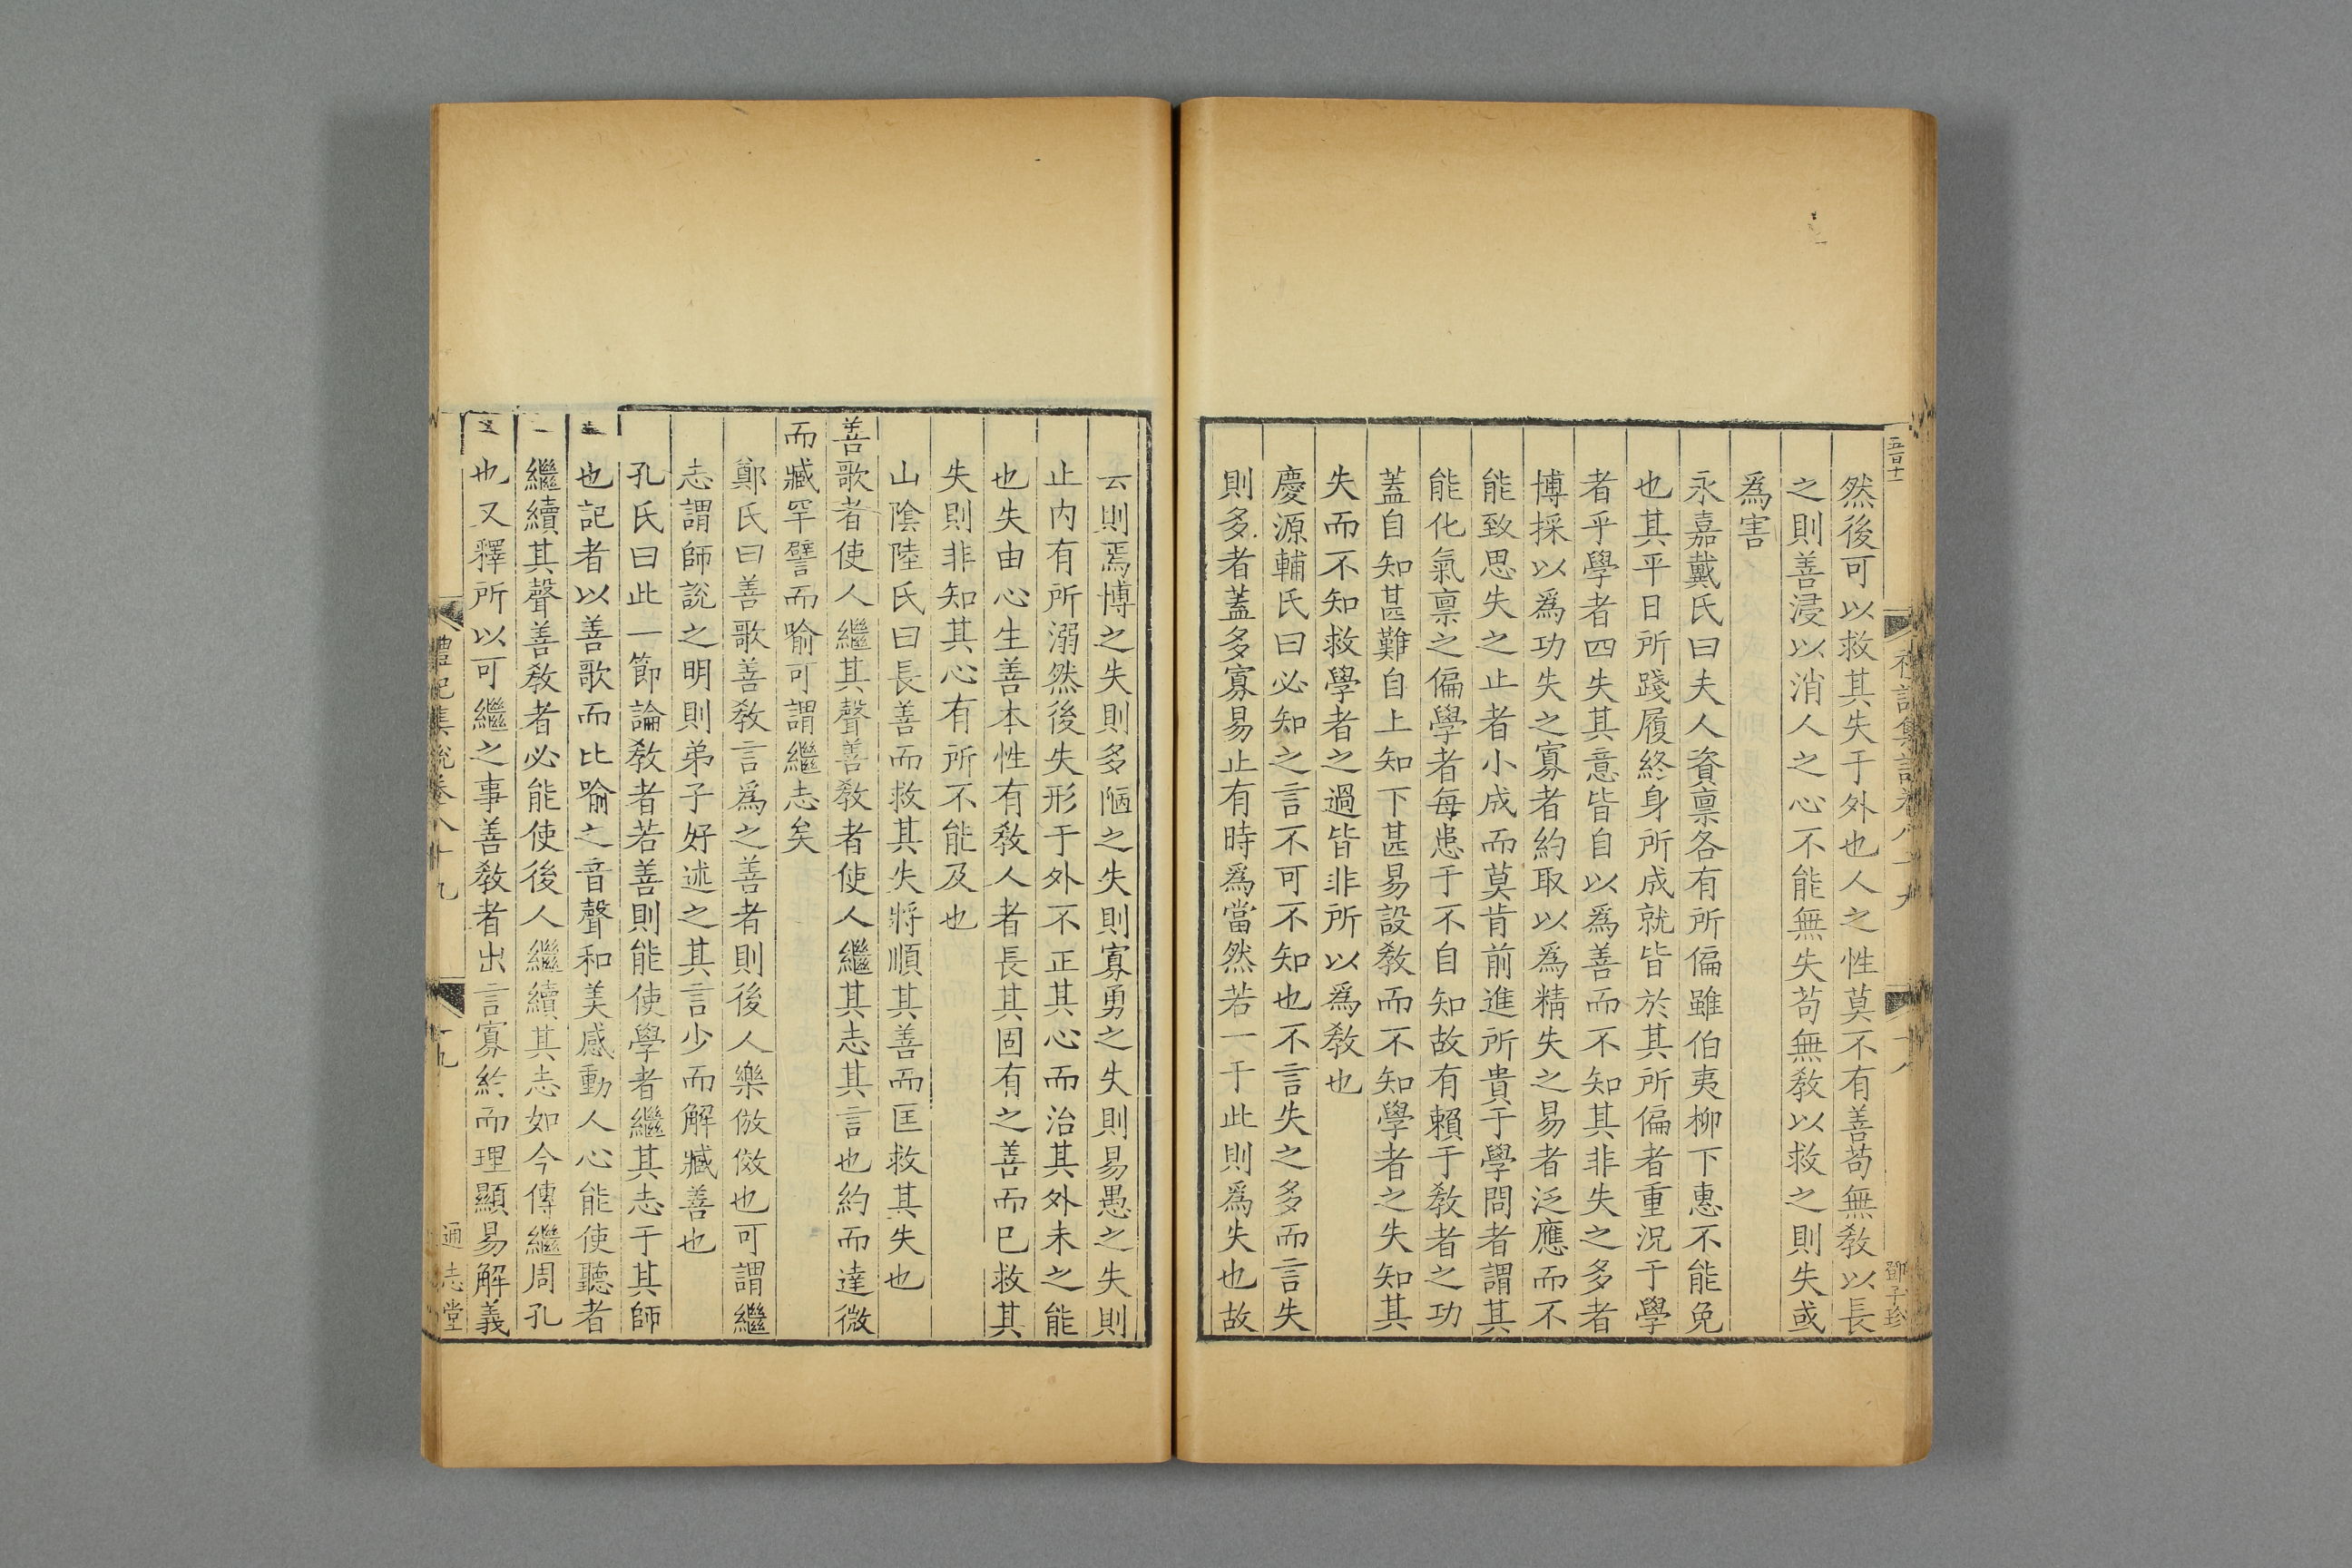 五百十
禮記集說卷八十九
十八
鄧子珍
然後可以救其失于外也人之性莫不有善苟無教以長
之則善浸以消人之心不能無失苟無教以救之則失或
爲害
永嘉戴氏曰夫人資稟各有所偏雖伯夷柳下惠不能免
也其平日所踐履終身所成就皆於其所偏者重況于學
者乎學者四失其意皆自以爲善而不知其非失之多者
博採以爲功失之寡者約取以爲精失之易者泛應而不
能致思失之止者小成而莫肯前進所貴于學問者謂其
能化氣稟之偏學者每患于不自知故有賴于教者之功
蓋自知甚難自上知下甚易設教而不知學者之失知其
失而不知救學者之過皆非所以爲教也
慶源輔氏曰必知之言不可不知也不言失之多而言失
則多者蓋多寡易止有時爲當然若一于此則爲失也故
云則焉博之失則多陋之失則寡勇之失則易愚之失則
止内有所溺然後失形于外不正其心而治其外未之能
也失由心生善本性有教人者長其固有之善而已救其
失則非知其心有所不能及也
山陰陸氏曰長善而救其失將順其善而匡救其失也
善歌者使人繼其聲善教者使人繼其志其言也約而達微
而臧罕譬而喻可謂繼志矣
鄭氏曰善歌善教言爲之善者則後人樂倣傚也可謂繼
志謂師說之明則弟子好述之其言少而解臧善也
孔氏曰此一節論教者若善則能使學者繼其志于其師
也記者以善歌而比喻之音聲和美感動人心能使聽者
繼續其聲善教者必能使後人繼續其志如今傳繼周孔
也又釋所以可繼之事善教者出言寡約而理顯易解義
禮記集說卷八十九
十九
通志堂